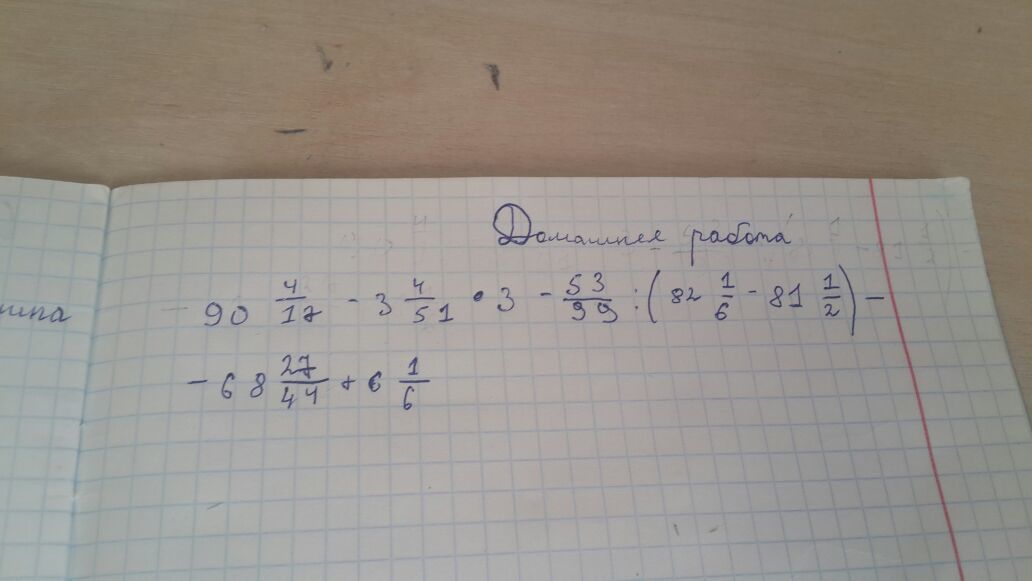 Домашняя работа
90 4/17 - 3 4/51 • 3 - 53/99 : (82 1/6 - 81 1/2) -
- 68 27/44 + 6 1/6